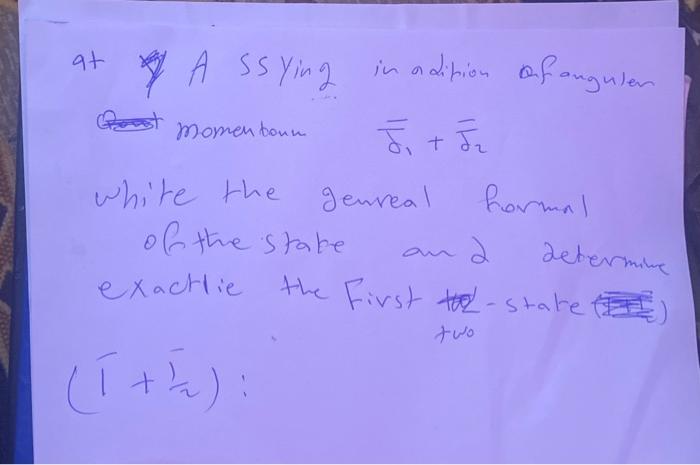 at A ssying in adition of anguler
momentoum J̅₁ + J̅₂
white the genreal formal
of the state and determine
exactlie the First - state
two
(1̅ + 1̅/2) :